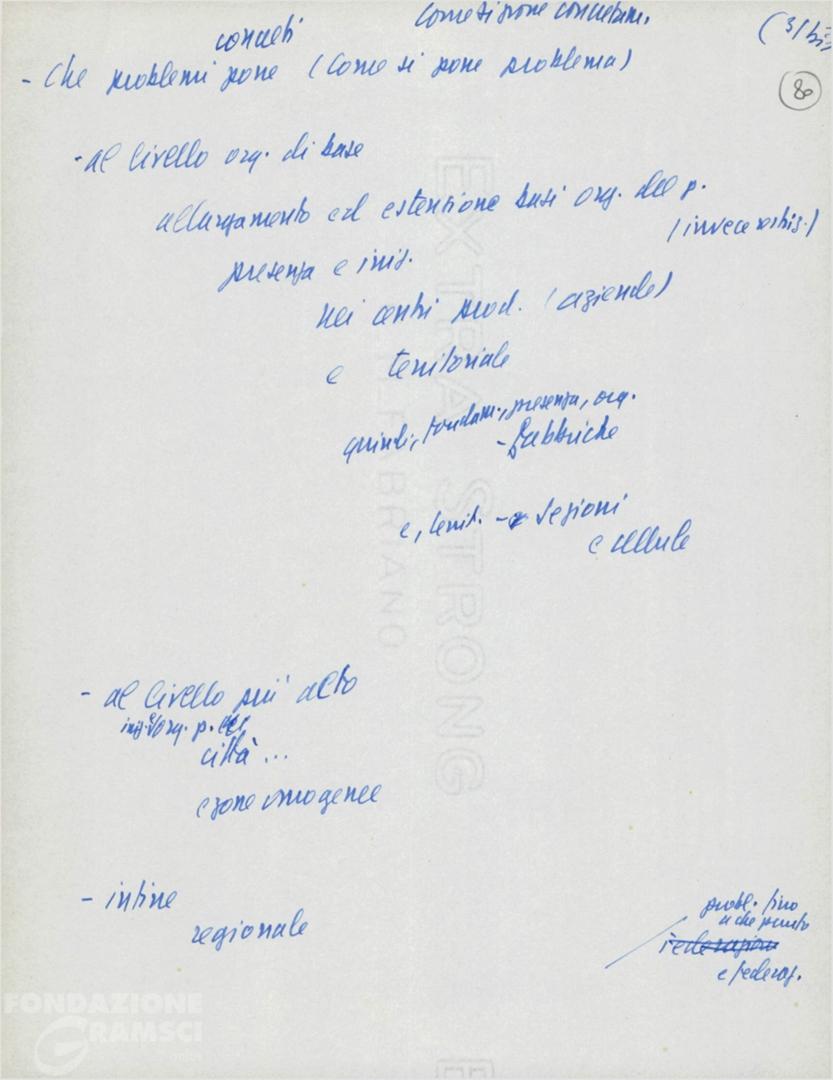 Come si pone concretam. (3/bis
concreti
- Che problemi pone (Come si pone problema)
80
- al livello org. di base
allargamento ed estensione basi org. del p.
(invece restrig.)
presenza e iniz.
nei centri prod. (aziende)
e territoriale
quindi, fondam., presenza, org.
- fabbriche
e, territ. - sezioni
e cellule
- al livello più alto
iniz. e org. p. 
città ...
e zone omogenee
- infine
regionale
probl. fino
a che punto
e federaz.
EXTRA STRONG
FABRIANO
FONDAZIONE
GRAMSCI